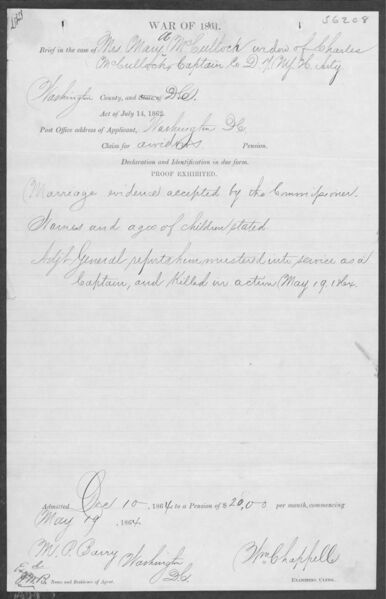 56208
WAR OF 1861.
Brief in the case of Mrs. Mary A McCullock widow of Charles
McCullock, Captain Co D 7 NY H. Arty
Washington County, and State of D.C.
Act of July 14, 1862.
Post Office address of Applicant, Washington D.C.
Claim for a widow's Pension.
Declaration and Identification in due form.
PROOF EXHIBITED.
Marriage evidence accepted by the Commissioner.
Names and ages of children stated
Adjt General reports him mustered into service as a
Captain, and killed in action May 19. 1864.
Admitted Dec 10, 1864 to a Pension of $20,00 per month, commencing
May 19, 1864.
M. P. Barry Washington D.C.
Wm Chappell
EXAMINING CLERK.
Name and Residence of Agent.